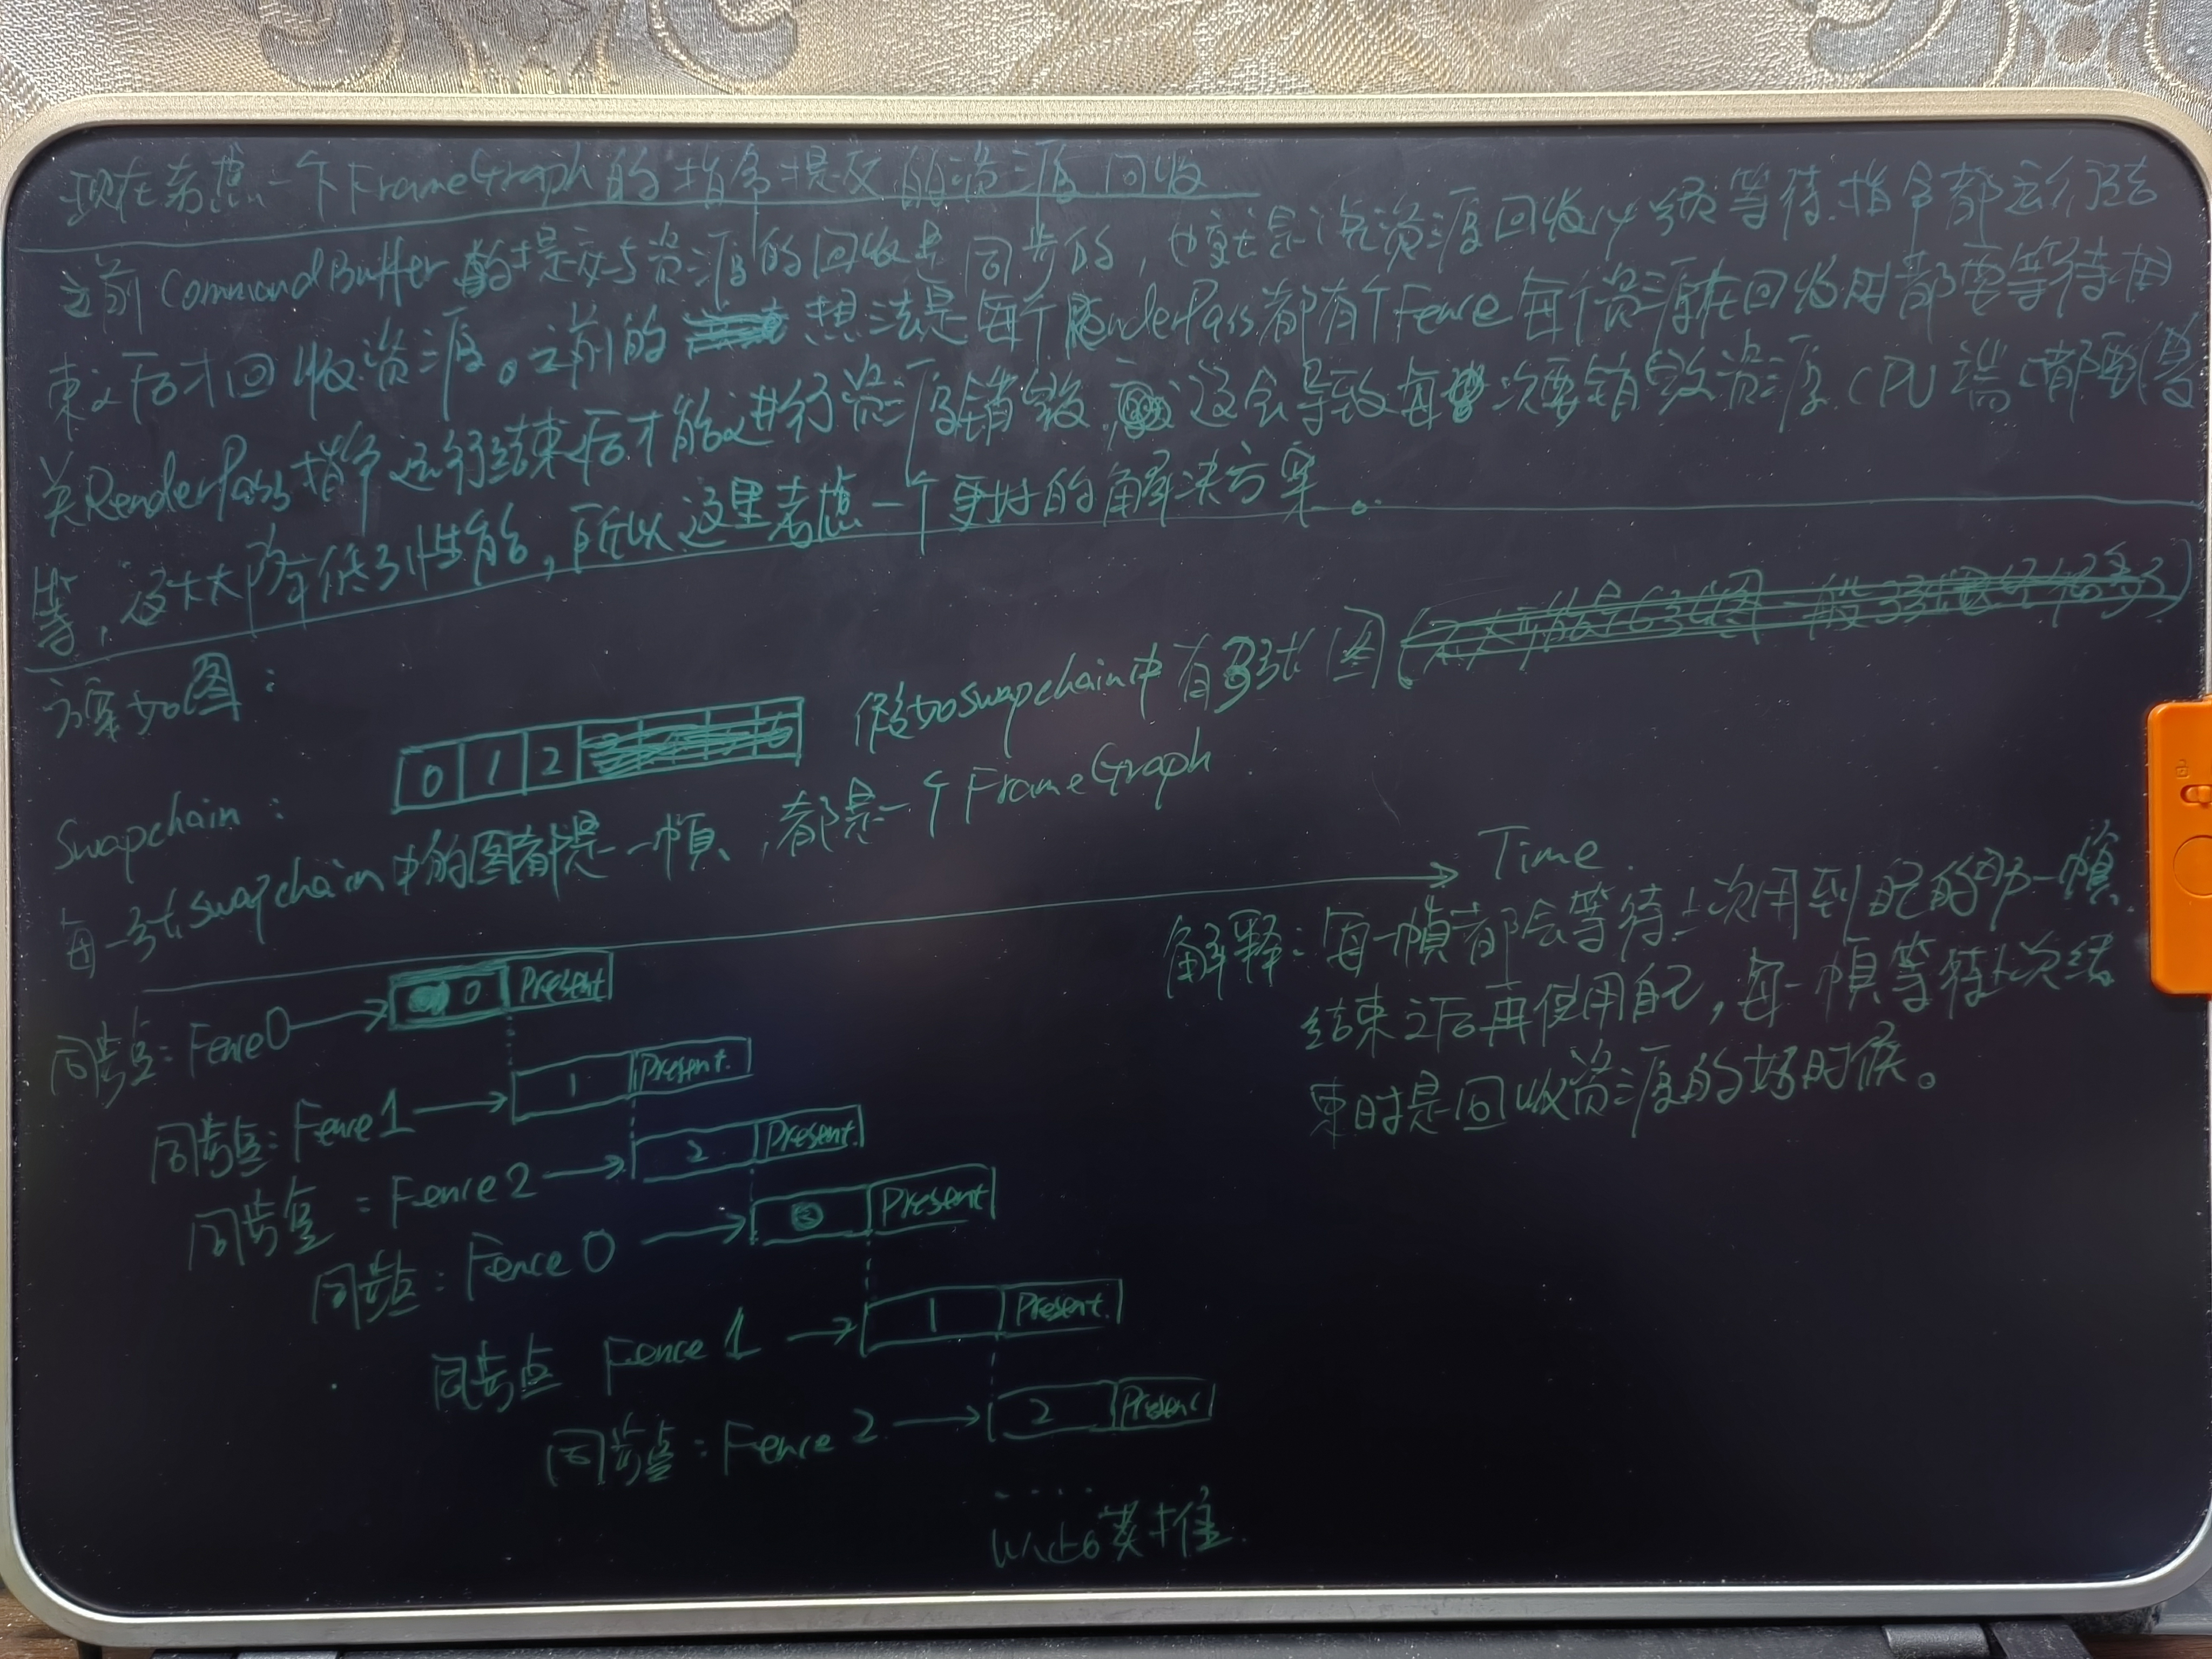 现在考虑一个FrameGraph的指令提交的资源回收
之前CommandBuffer的提交与资源的回收是同步的，也就是说资源回收必须等待指令都运行结
束之后才回收资源。之前的想法是每个RenderPass都有个Fence每个资源在回收时都要等待相
关RenderPass指令运行结束后才能进行资源销毁，这会导致每次要销毁资源CPU端都要得
等，这大大降低了性能，所以这里考虑一个更好的解决方案。
方案如图：
Swapchain： 0 1 2 假如swapchain中有3张图
每一张swapchain中的图都是一帧，都是一个FrameGraph
Time
同步点：Fence0 0 Present
同步点：Fence1 1 Present
同步点：Fence2 2 Present
同步点：Fence 0 Present
同步点 Fence 1 1 Present
同步点：Fence 2 2 Present
....
以此类推
解释：每一帧都会等待上次用到自己的那一帧
结束之后再使用自己，每一帧等待上次结
束时是回收资源的好时候。